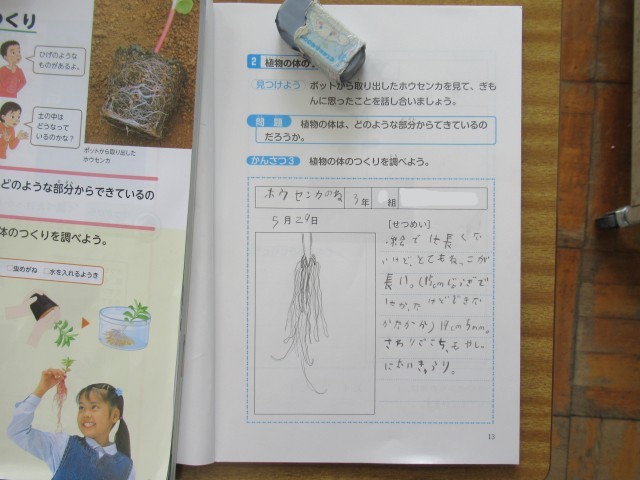 つくり
ひげのような
ものがあるよ。
土の中は
どうなって
いるのかな?
ポットから取り出した
ホウセンカ
どのような部分からできているの
体のつくりを調べよう。
虫めがね
水を入れるようき
2 植物の体の
見つけよう ポットから取り出したホウセンカを見て、ぎも
んに思ったことを話し合いましょう。
問題 植物の体は、どのような部分からできているの
だろうか。
かんさつ3 植物の体のつくりを調べよう。
ホウセンカのね 3年 組
5月29日
[せつめい]
絵では長くな
いけど、とてもね、こが
長い。(15cmじょうぎで
はかったけどできな
かったから)19cm5mm。
さわりごこち、もやし。
においきゅうり。
13